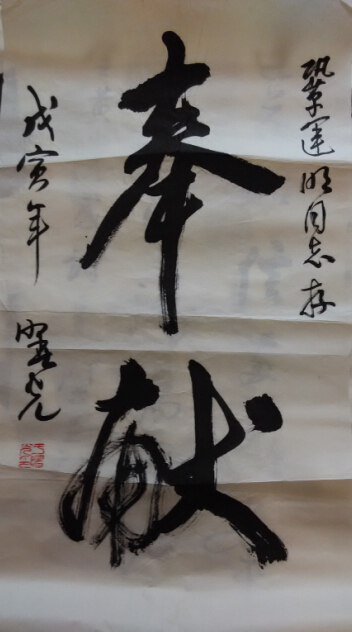 鞏運明同志存
奉献
戊寅年